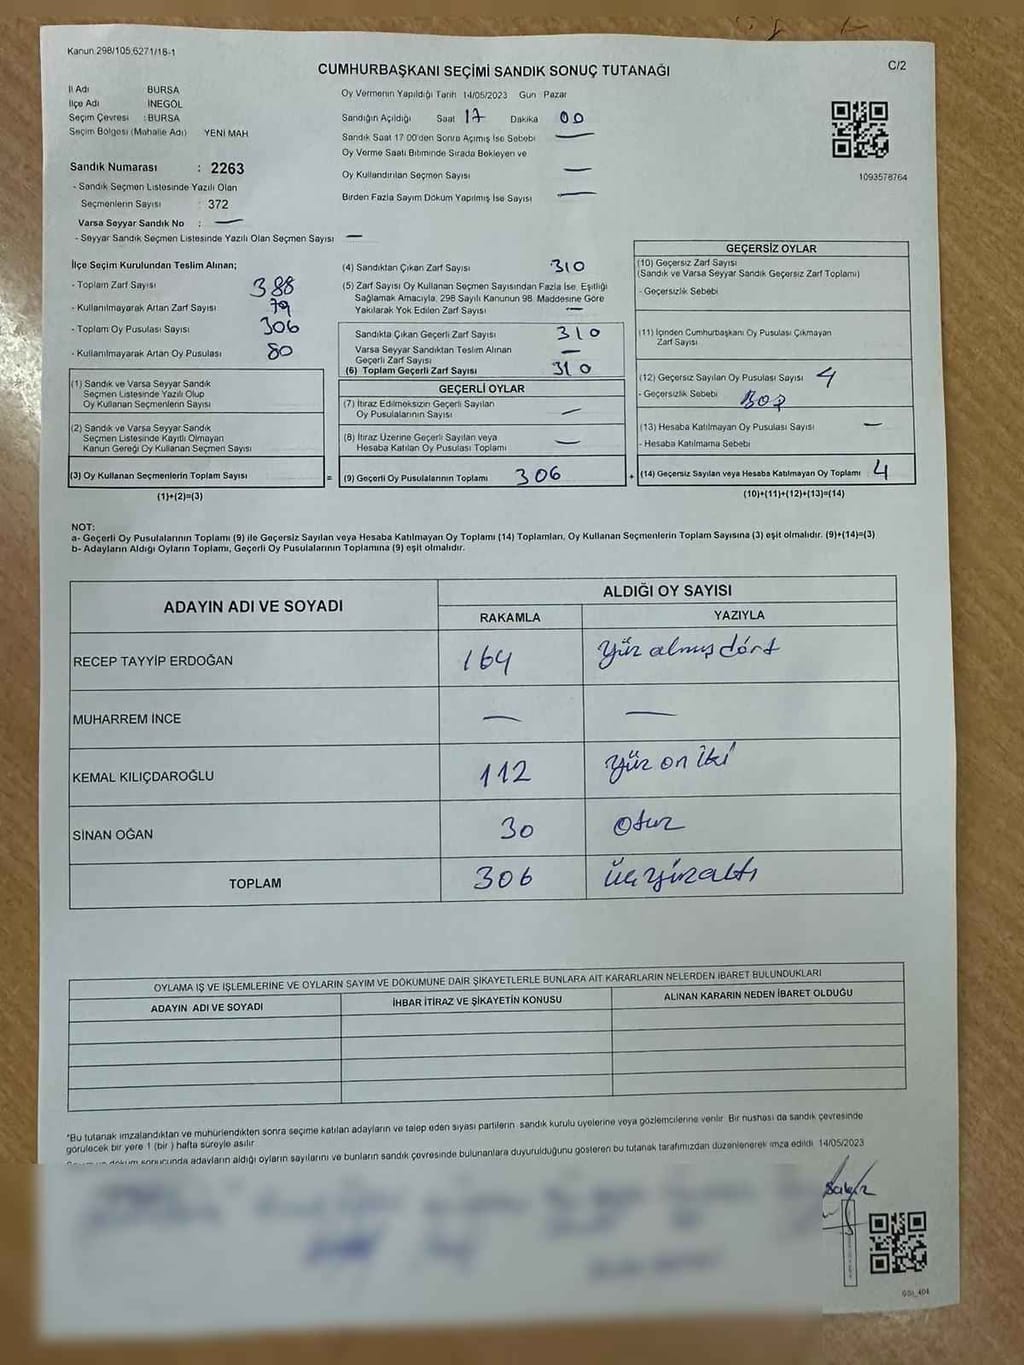 Kanun 298/105,6271/16-1
C/2
CUMHURBAŞKANI SEÇİMİ SANDIK SONUÇ TUTANAĞI
İl Adı BURSA
İlçe Adı İNEGÖL
Seçim Çevresi : BURSA
Seçim Bölgesi (Mahalle Adı) YENİ MAH
Sandık Numarası : 2263
- Sandık Seçmen Listesinde Yazılı Olan
Seçmenlerin Sayısı 372
Varsa Seyyar Sandık No : —
- Seyyar Sandık Seçmen Listesinde Yazılı Olan Seçmen Sayısı —
Oy Vermenin Yapıldığı Tarih 14/05/2023 Gün Pazar
Sandığın Açıldığı Saat 17 Dakika 00
Sandık Saat 17 00'den Sonra Açılmış İse Sebebi —
Oy Verme Saati Bitiminde Sırada Bekleyen ve
Oy Kullandırılan Seçmen Sayısı —
Birden Fazla Sayım Döküm Yapılmış İse Sayısı —
1093578764
İlçe Seçim Kurulundan Teslim Alınan;
- Toplam Zarf Sayısı 388
- Kullanılmayarak Artan Zarf Sayısı 79
- Toplam Oy Pusulası Sayısı 306
- Kullanılmayarak Artan Oy Pusulası 80
(1) Sandık ve Varsa Seyyar Sandık
Seçmen Listesinde Yazılı Olup
Oy Kullanan Seçmenlerin Sayısı
(2) Sandık ve Varsa Seyyar Sandık
Seçmen Listesinde Kayıtlı Olmayan
Kanun Gereği Oy Kullanan Seçmen Sayısı
(3) Oy Kullanan Seçmenlerin Toplam Sayısı =
(1)+(2)=(3)
(4) Sandıktan Çıkan Zarf Sayısı 310
(5) Zarf Sayısı Oy Kullanan Seçmen Sayısından Fazla İse, Eşitliği
Sağlamak Amacıyla, 298 Sayılı Kanunun 98. Maddesine Göre
Yakılarak Yok Edilen Zarf Sayısı —
Sandıkta Çıkan Geçerli Zarf Sayısı 310
Varsa Seyyar Sandıktan Teslim Alınan
Geçerli Zarf Sayısı —
(6) Toplam Geçerli Zarf Sayısı 310
GEÇERLİ OYLAR
(7) İtiraz Edilmeksizin Geçerli Sayılan
Oy Pusulalarının Sayısı —
(8) İtiraz Üzerine Geçerli Sayılan veya
Hesaba Katılan Oy Pusulası Toplamı —
(9) Geçerli Oy Pusulalarının Toplamı 306 +
GEÇERSİZ OYLAR
(10) Geçersiz Zarf Sayısı
(Sandık ve Varsa Seyyar Sandık Geçersiz Zarf Toplamı)
- Geçersizlik Sebebi
(11) İçinden Cumhurbaşkanı Oy Pusulası Çıkmayan
Zarf Sayısı
(12) Geçersiz Sayılan Oy Pusulası Sayısı 4
- Geçersizlik Sebebi
(13) Hesaba Katılmayan Oy Pusulası Sayısı —
- Hesaba Katılmama Sebebi
(14) Geçersiz Sayılan veya Hesaba Katılmayan Oy Toplamı 4
(10)+(11)+(12)+(13)=(14)
NOT:
a- Geçerli Oy Pusulalarının Toplamı (9) ile Geçersiz Sayılan veya Hesaba Katılmayan Oy Toplamı (14) Toplamları, Oy Kullanan Seçmenlerin Toplam Sayısına (3) eşit olmalıdır. (9)+(14)=(3)
b- Adayların Aldığı Oyların Toplamı, Geçerli Oy Pusulalarının Toplamına (9) eşit olmalıdır.
ADAYIN ADI VE SOYADI
ALDIĞI OY SAYISI
RAKAMLA YAZIYLA
RECEP TAYYİP ERDOĞAN 164 Yüz almış dört
MUHARREM İNCE — —
KEMAL KILIÇDAROĞLU 112 Yüz on iki
SİNAN OĞAN 30 Otuz
TOPLAM 306 üç yüz altı
OYLAMA İŞ VE İŞLEMLERİNE VE OYLARIN SAYIM VE DÖKÜMÜNE DAİR ŞİKAYETLERLE BUNLARA AİT KARARLARIN NELERDEN İBARET BULUNDUKLARI
ADAYIN ADI VE SOYADI İHBAR İTİRAZ VE ŞİKAYETİN KONUSU ALINAN KARARIN NEDEN İBARET OLDUĞU
*Bu tutanak imzalandıktan ve mühürlendikten sonra seçime katılan adayların ve talep eden siyasi partilerin sandık kurulu üyelerine veya gözlemcilerine verilir. Bir nüshası da sandık çevresinde
görülecek bir yere 1 (bir ) hafta süreyle asılır
döküm sonucunda adayların aldığı oyların sayılarını ve bunların sandık çevresinde bulunanlara duyurulduğunu gösteren bu tutanak tarafımızdan düzenlenerek imza edildi. 14/05/2023